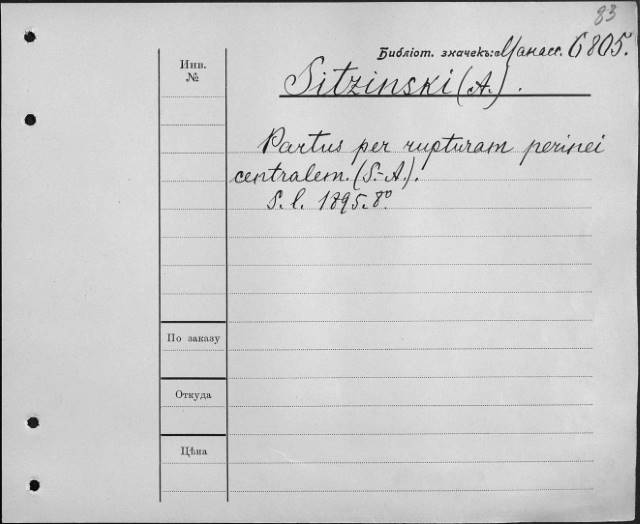 83
Библіот. значекъ: Манасс. 6805.
Инв.
№
Sitzinski (A.).
Partus per rupturam perinei
centralem. (S.-A.).
S. l. 1895. 8°
По заказу
Откуда
Цѣна